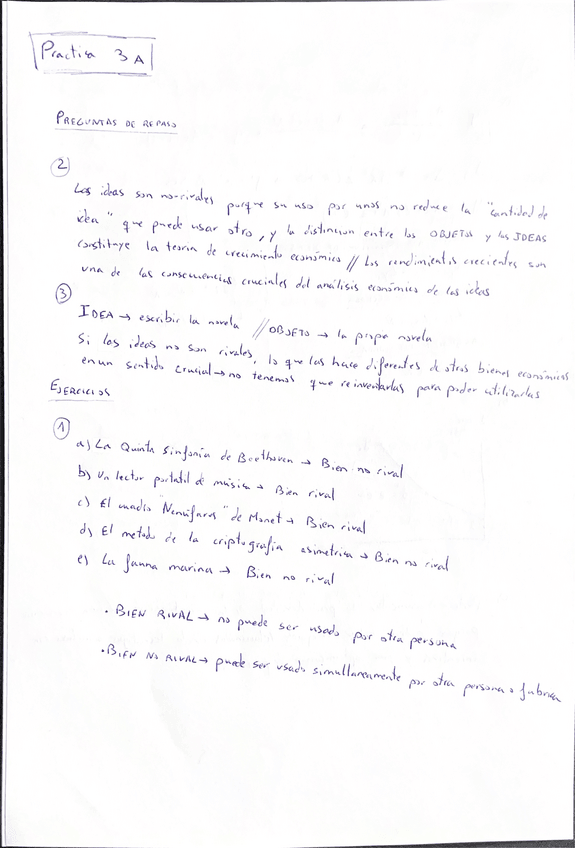 Practica 3A
PREGUNTAS DE REPASO
2
Las ideas son no-rivales porque su uso por unos no reduce la "cantidad de
idea" que puede usar otro, y la distincion entre los OBJETOS y las IDEAS
constituye la teoria de crecimiento económico // Los rendimientos crecientes son
una de las consecuencias cruciales del análisis económico de las ideas
3
IDEA → escribir la novela // OBJETO → la propia novela
Si las ideas no son rivales, lo que las hace diferentes de otros bienes económicos
en un sentido crucial → no tenemos que reinventarlas para poder utilizarlas
EJERCICIOS
1
a) La Quinta Sinfonía de Beethoven → Bien no rival
b) Un lector portatil de música → Bien rival
c) El cuadro "Nenúfares" de Monet → Bien rival
d) El metodo de la criptografía asimetrica → Bien no rival
e) La fauna marina → Bien no rival
• BIEN RIVAL → no puede ser usado por otra persona
• BIEN NO RIVAL → puede ser usado simultaneamente por otra persona o fabrica